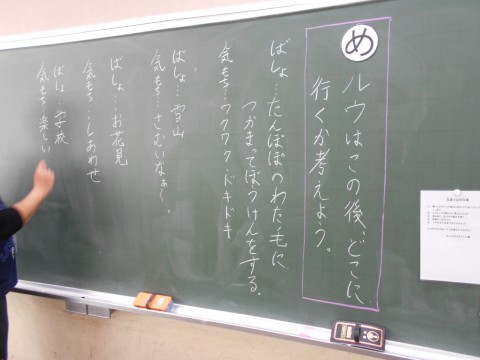 め
ルウはこの後、どこに
行くか考えよう。
ばしょ…たんぽぽのわた毛に
つかまってぼうけんをする。
気もち…ワクワク・ドキドキ
ばしょ…雪山
気もち…さむいなぁ〜。
ばしょ…お花見
気もち…しあわせ
ばしょ…学校
気もち…楽しい